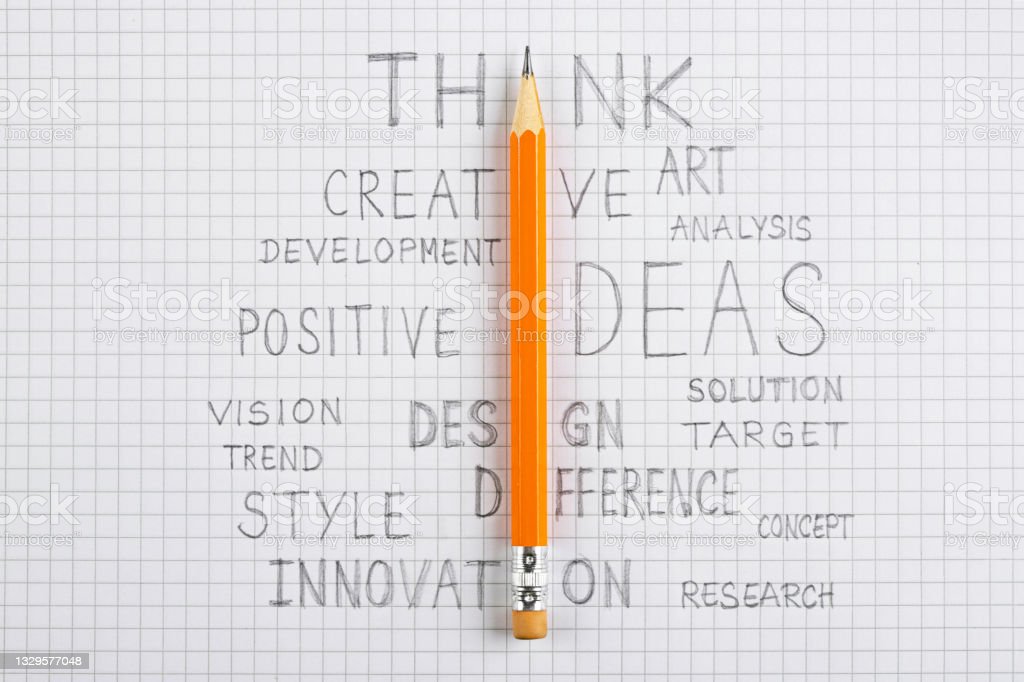 THINK
CREATIVE ART
ANALYSIS
DEVELOPMENT
POSITIVE IDEAS
SOLUTION
VISION DESIGN TARGET
TREND
STYLE DIFFERENCE
CONCEPT
INNOVATION RESEARCH
iStock
by Getty Images™
1329577048